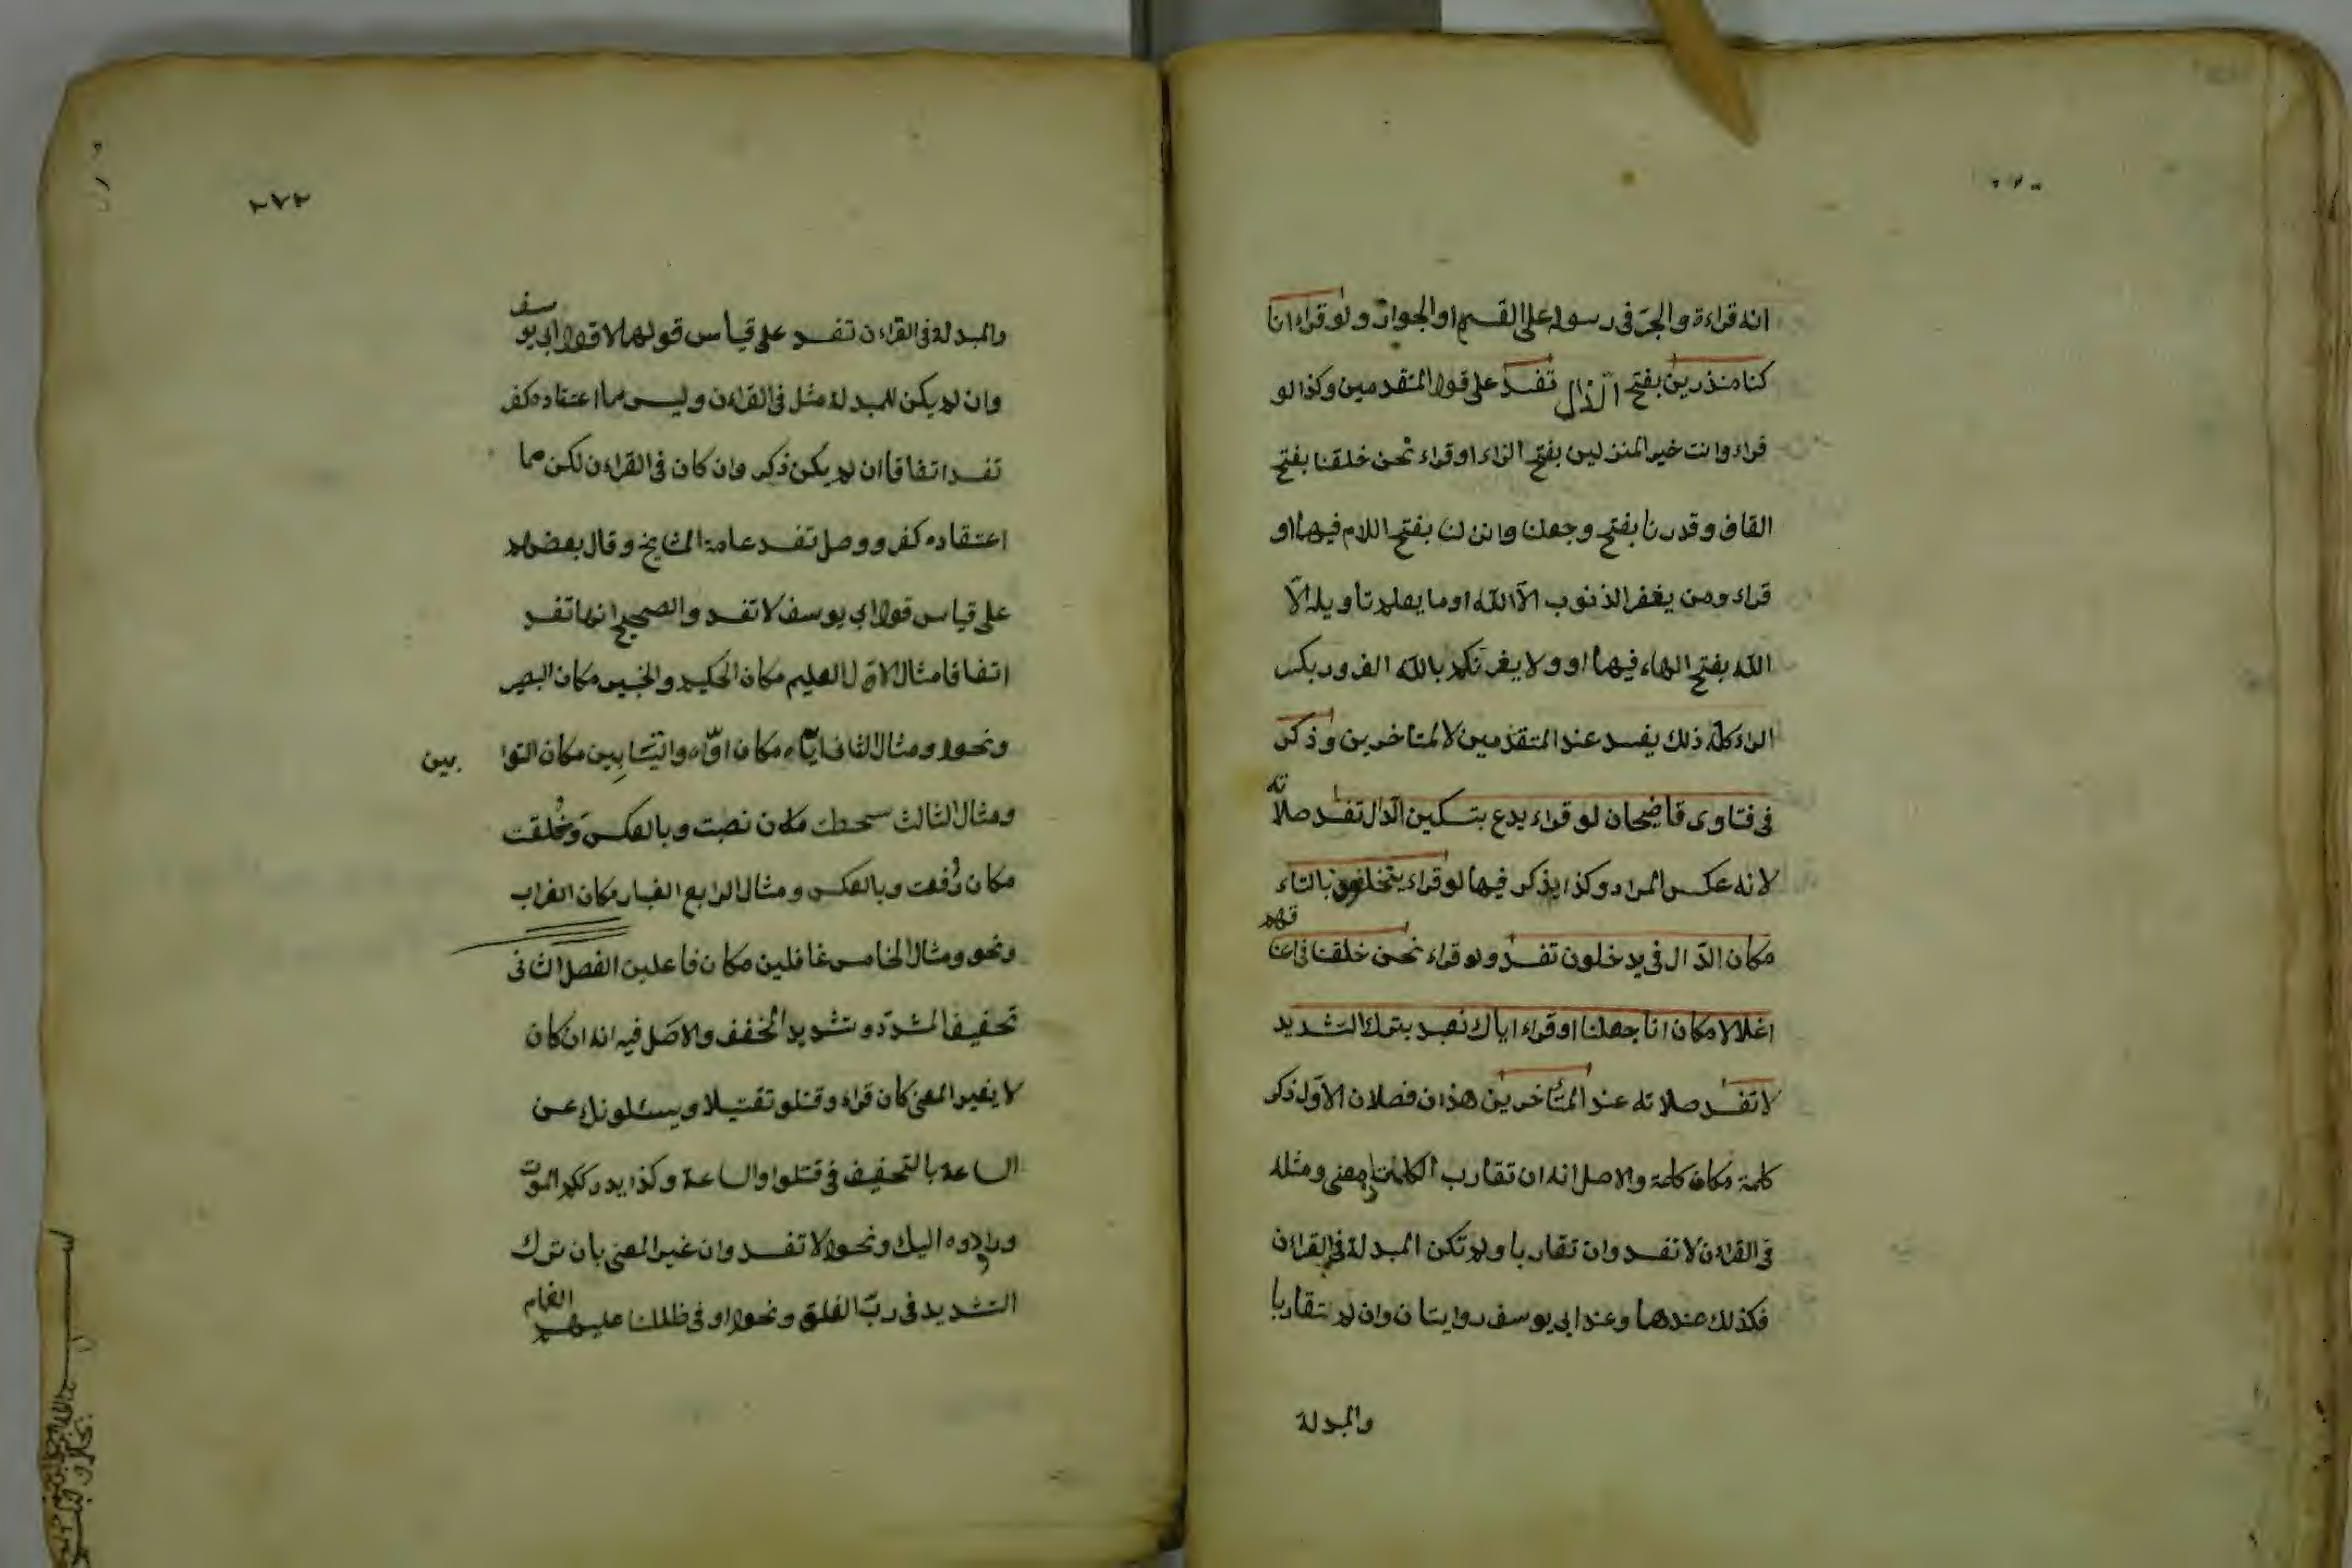 انه قراءة والجرّ في رسوله على القسم او الجوار ولو قراء انا
كنا منذرين بفتح الذال تفسد على قول المتقدمين وكذا لو
قراء وانت خير المنزلين بفتح الزاء او قراء نحن خلقنا بفتح
القاف وقدرنا بفتح وجعلنا وانزلنا بفتح اللام فيها او
قراء ومن يغفر الذنوب الّا اللّه او ما يعلم تأويله الّا
اللّه بفتح الهاء فيهما او ولا يغرّنكم باللّه الغرور بكسر
الراء كله ذلك يفسد عند المتقدّمين لا المتاخرين وذكر
في فتاوى قاضيخان لو قراء يدع بتسكين الدّال تفسد صلاته
لانه عكس المراد وكذا يذكر فيها لو قراء يتخلون بالتاء
مكان الدّال في يدخلون تفسد ولو قراء نحن خلقنا في اعناقهم
اغلالا مكان انا جعلنا او قراء اياك نعبد بترك التشديد
لا تفسد صلاته عند المتاخرين هذان فصلان الاوّل ذكر
كلمة مكان كلمة والاصل انه ان تقارب الكلمتان معنى ومثله
في القراءن لا تفسد وان تقاربا ولم تكن المبدلة في القراءن
فكذلك عندهما وعند ابي يوسف روايتان وان لم تتقاربا
والمبدلة
٢٧٢
والمبدلة في القراءن تفسد على قياس قولهما لا قول ابي يوسف
وان لم يكن للمبدلة مثل في القراءن وليس مما اعتقاده كفر
تفسد اتفاقا ان لم يكن ذكر وان كان في القراءن لكن مما
اعتقاده كفر ووصل تفسد عامة المشايخ وقال بعضهم
على قياس قول ابي يوسف لا تفسد والصحيح انها تفسد
اتفاقا مثال الاوّل العليم مكان الحكيم والخبير مكان البصير
ونحوه ومثال الثاني ايّاه مكان اوّاه والتيّابين مكان التوابين
ومثال الثالث سطحت مكان نصبت وبالعكس وخُلقت
مكان رُفعت وبالعكس ومثال الرابع الغبار مكان الغراب
ونحو ومثال الخامس غافلين مكان فاعلين الفصل الثاني
تخفيف المشدّد وتشديد المخفف والاصل فيه انه ان كان
لا يغير المعنى كان قراء وقتلو تقتيلا ويسئلونك عن
الساعة بالتخفيف في قتلوا والساعة وكذا يدرككم الموت
ورادوه اليك ونحوه لا تفسد وان غير المعنى بان ترك
التشديد في ربّ الفلق ونحوه او في ظللنا عليهم الغمام